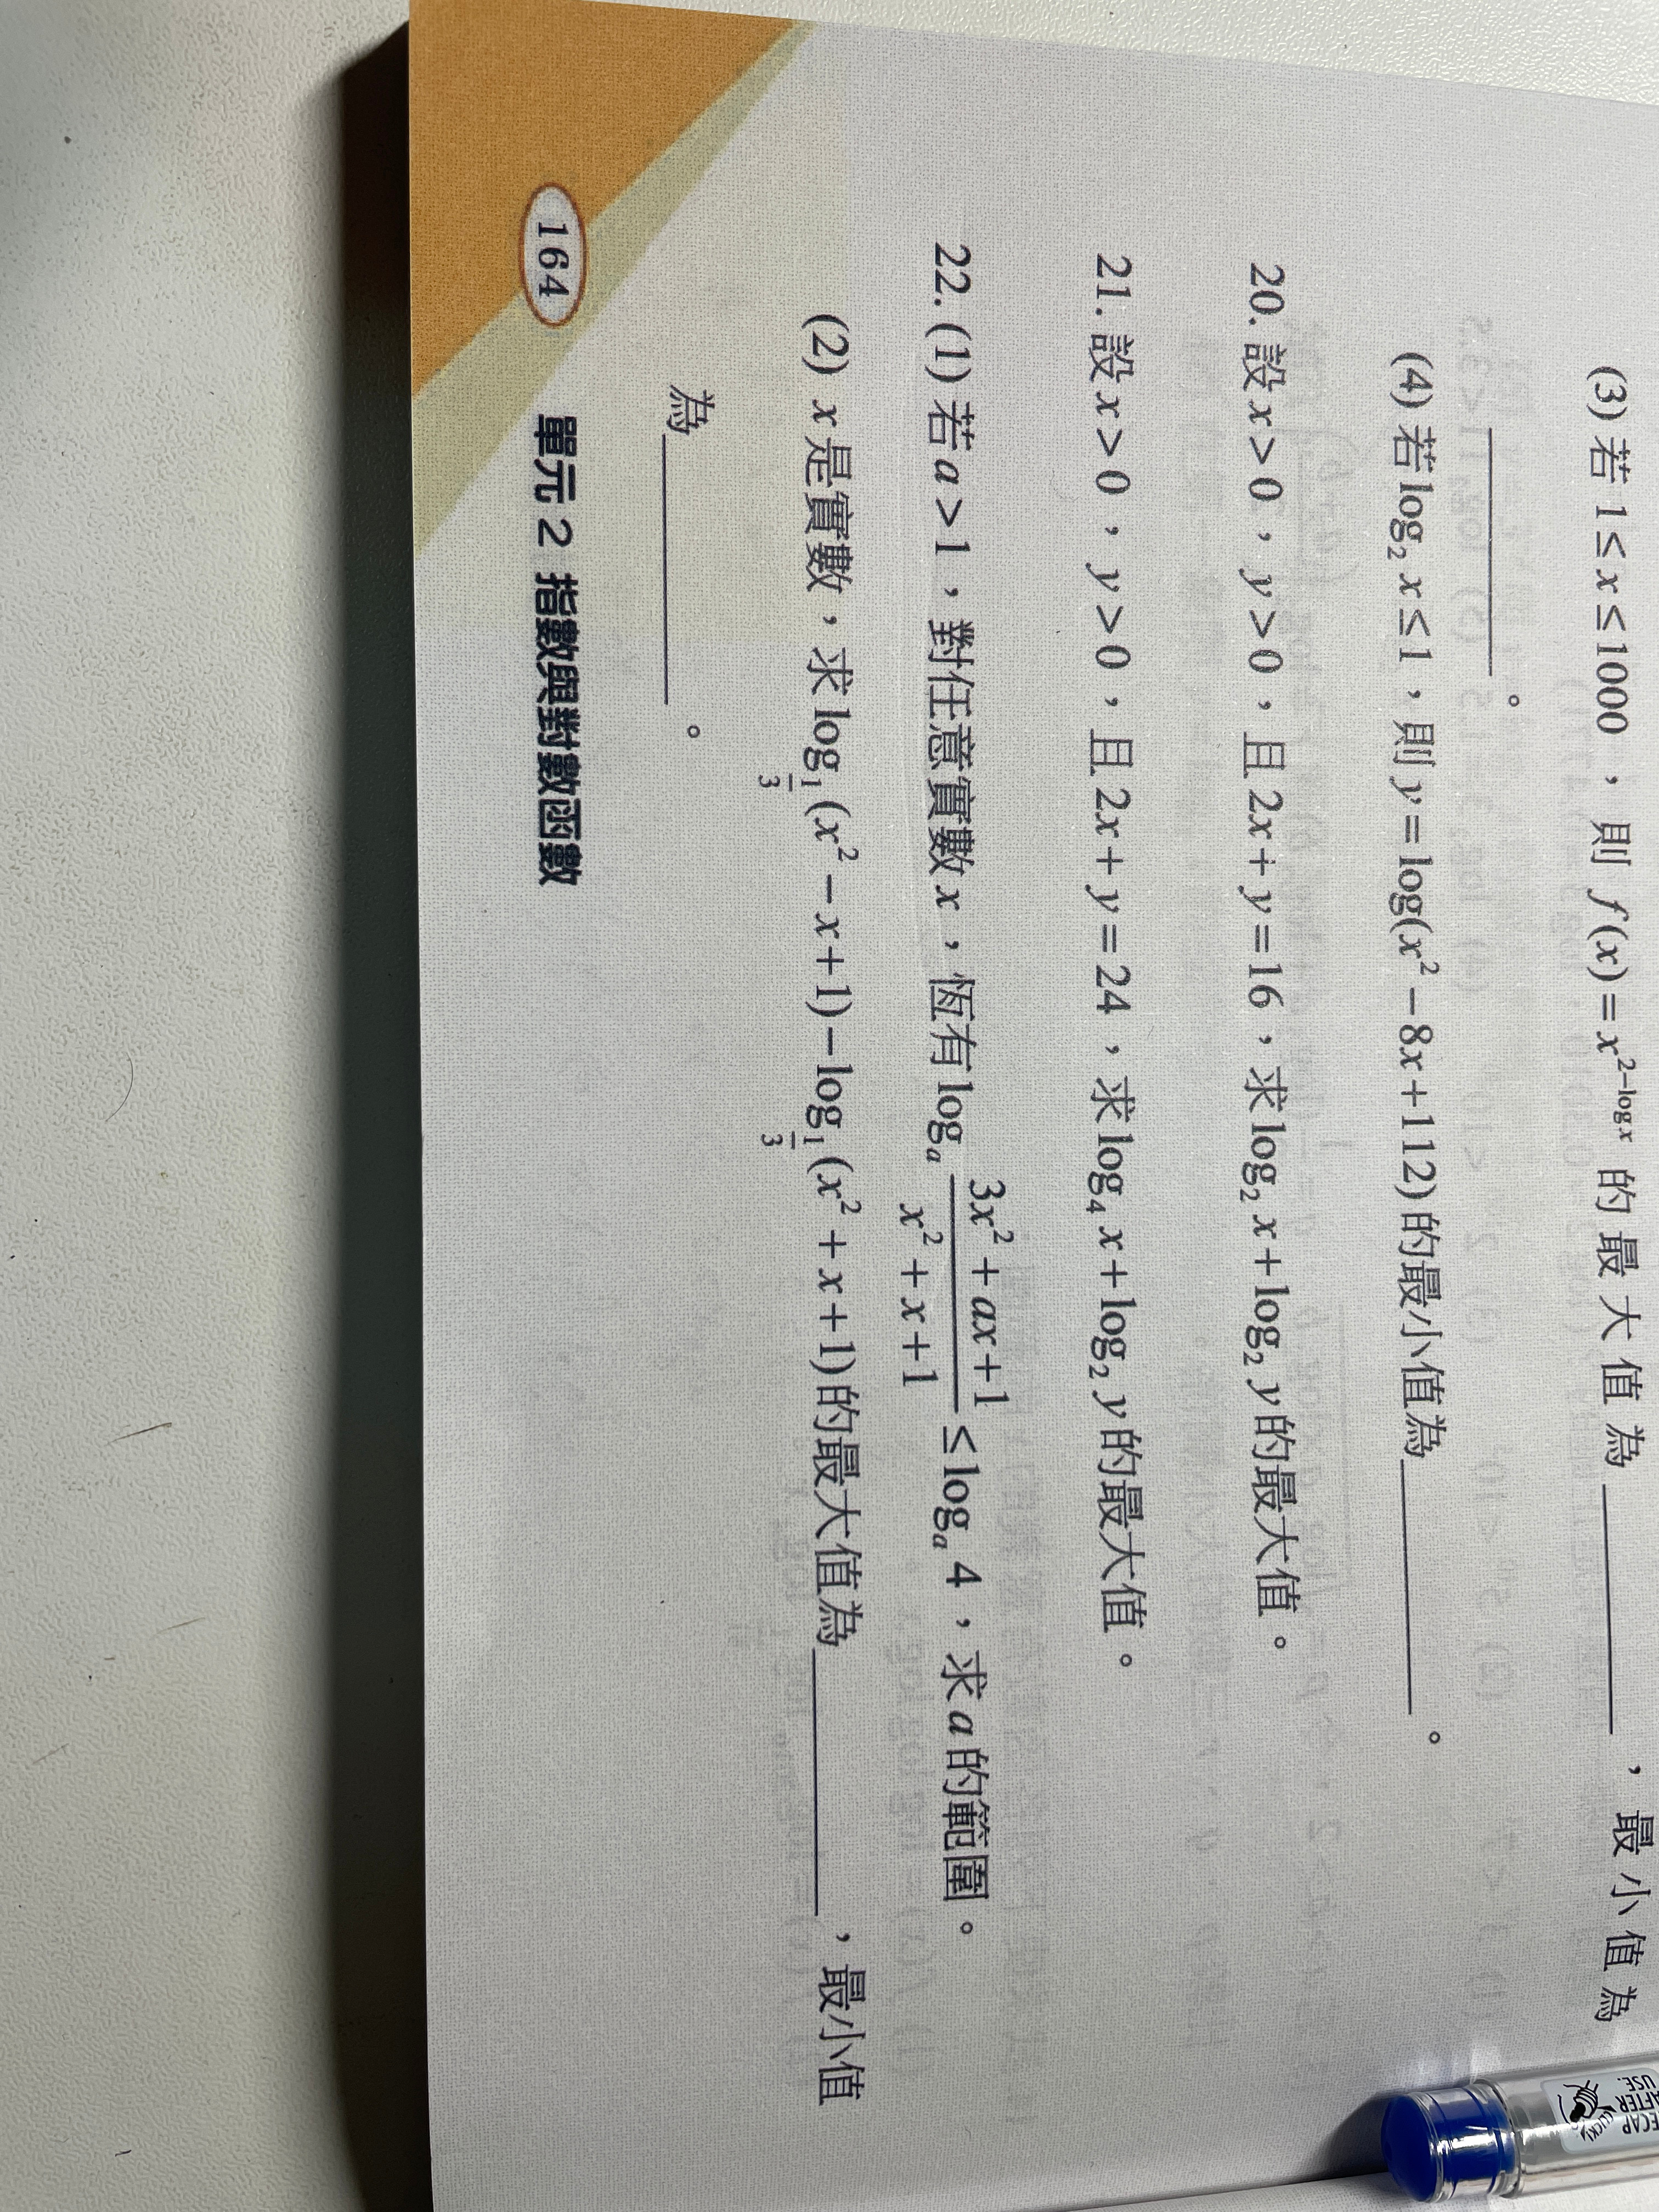 (3) 若 1≤x≤1000，則 f(x)=x^{2−log x} 的最大值為________，最小值為
________。
(4) 若 log₂ x≤1，則 y=log(x²−8x+112) 的最小值為________。
20. 設 x>0，y>0，且 2x+y=16，求 log₂ x+log₂ y 的最大值。
21. 設 x>0，y>0，且 2x+y=24，求 log₄ x+log₂ y 的最大值。
22. (1) 若 a>1，對任意實數 x，恆有 logₐ (3x²+ax+1)/(x²+x+1) ≤ logₐ 4，求 a 的範圍。
(2) x 是實數，求 log_{1/3}(x²−x+1)−log_{1/3}(x²+x+1) 的最大值為________，最小值
為________。
164 單元 2 指數與對數函數
RECAP
AFTER
USE.